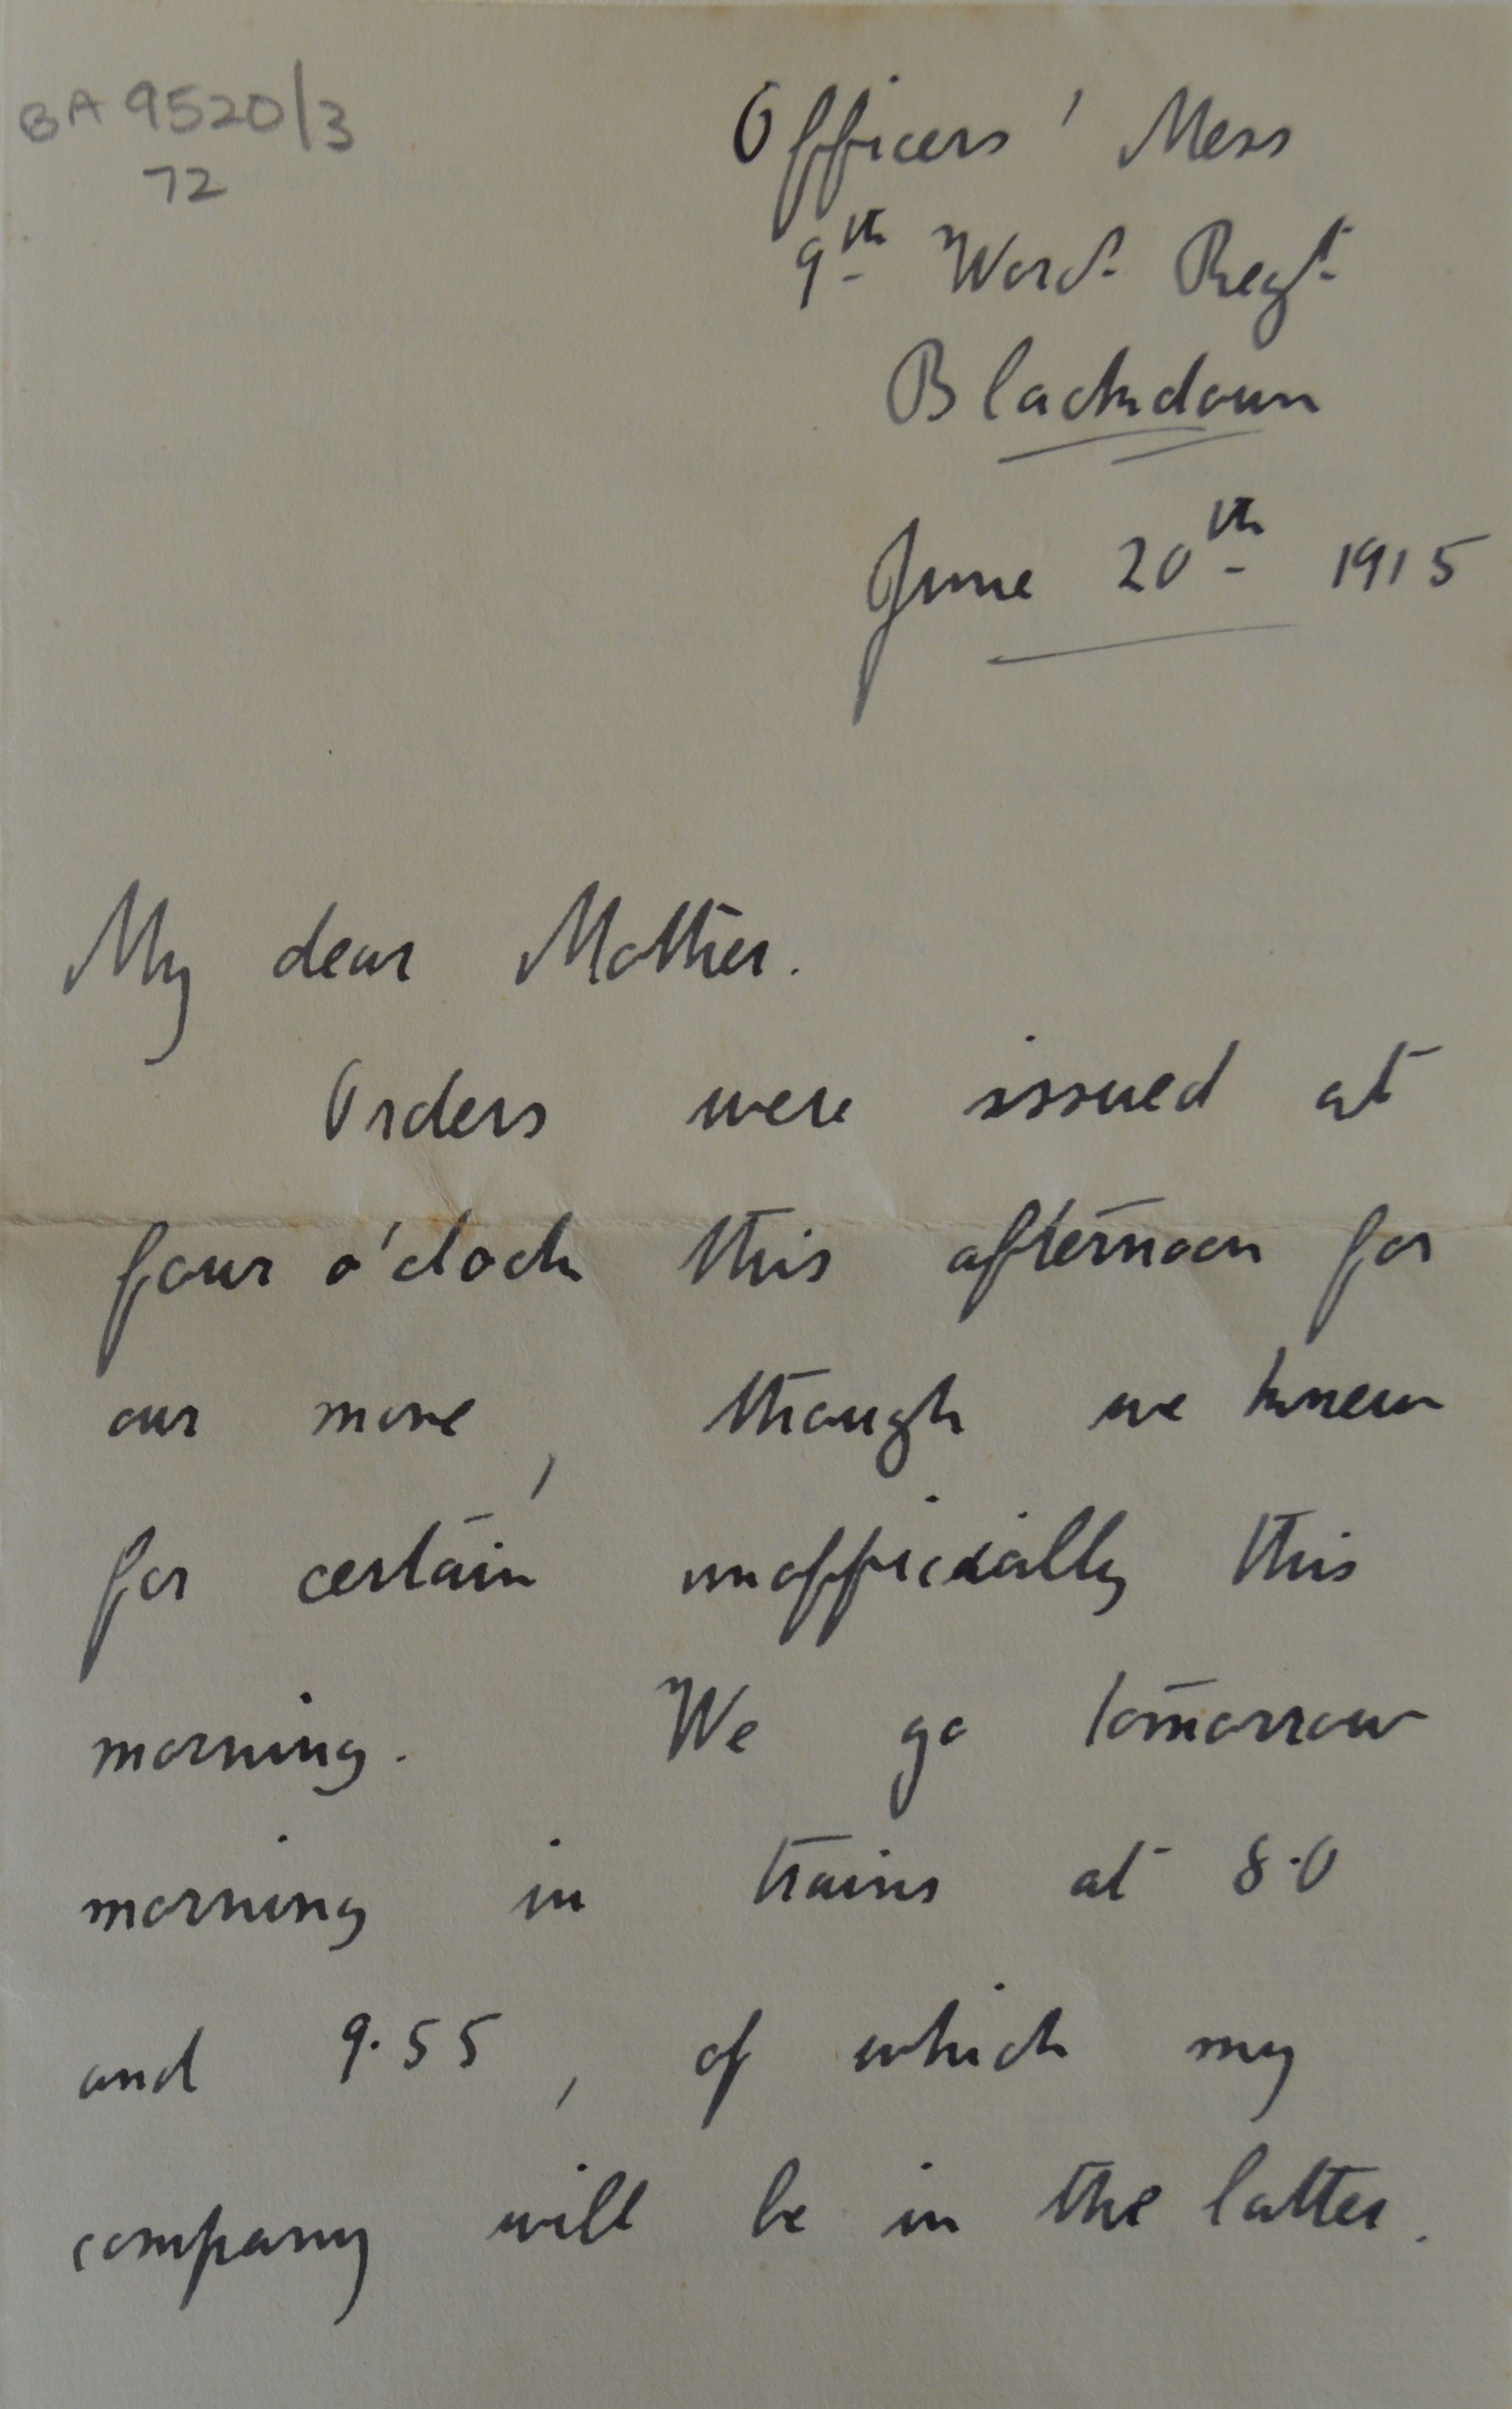 BA 9520/3
72
Officers' Mess
9th Worc. Regt.
Blackdown
June 20th 1915
My dear Mother.
Orders were issued at
four o'clock this afternoon for
our move, though we knew
for certain unofficially this
morning. We go tomorrow
morning in trains at 8.0
and 9.55, of which my
company will be in the latter.